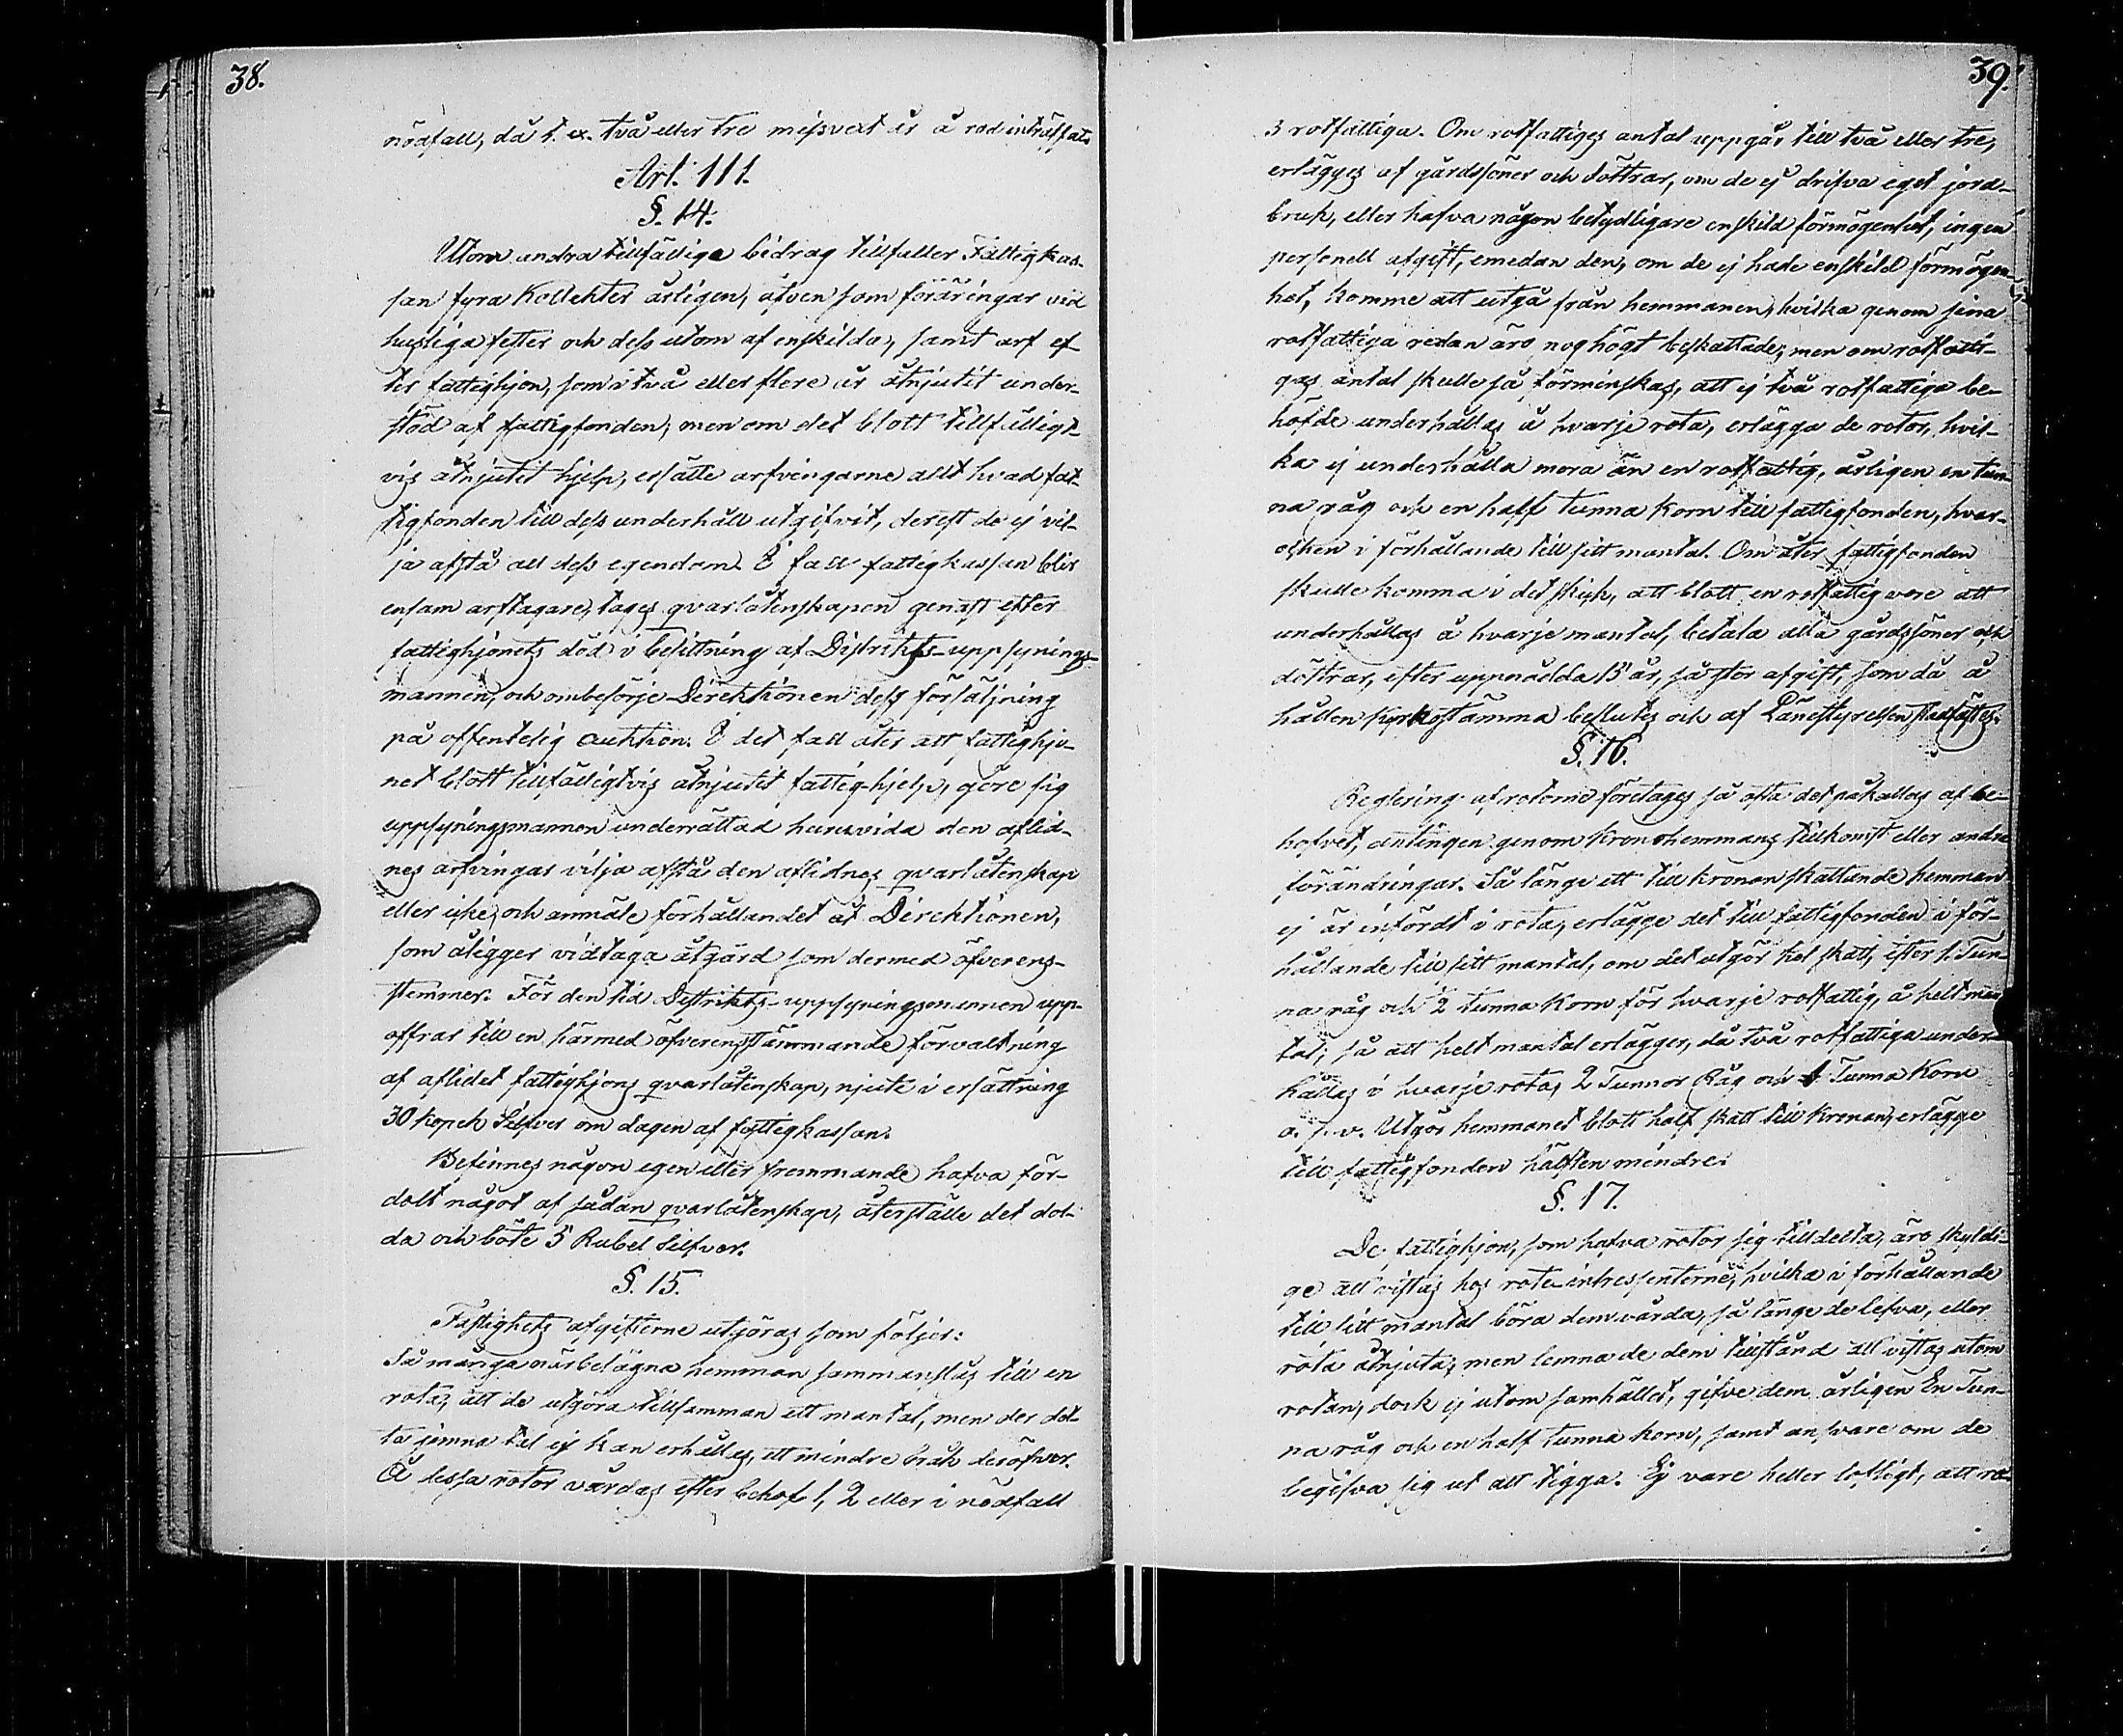 38.
nödfall, då t. ex. två eller tre missvext år å rad inträffat.
Art. 111.
§. 14.
Utom andra tillfälliga bidrag tillfaller Fattigkas-
san fyra Kollekter årligen, äfven som föräringar vid
husliga fester och dess utom af enskilda, samt arf ef-
ter fattighjon, som i två eller flere år åtnjutit under-
stöd af fattigfonden; men om det blott tillfälligt-
vis åtnjutit hjelp, ersätte arfvingarne allt hvad fat-
tigfonden till dess underhåll utgifvit, derest de ej vil-
ja afstå all dess egendom. I fall fattigkassan blir
ensam arftagare, tages qvarlåtenskapen genast efter
fattighjonets död i besittning af Distrikts-uppsynings-
mannen, och ombesörje Direktionen dess försäljning
på offentelig auktion. I det fall åter att fattighjo-
net blott tillfälligtvis åtnjutit fattig-hjelp, göre sig
uppsyningsmannen underrättad huruvida den aflid-
nes arfvingar vilja afstå den aflidnes qvarlåtenskap
eller icke, och anmäle förhållandet åt Direktionen,
som åligger vidtaga åtgärd som dermed öfverens-
stemmer. För den tid Distrikts-uppsyningsmannen upp-
offrar till en härmed öfverensstämmande förvaltning
af aflidet fattighjons qvarlåtenskap, njute i ersättning
30 kopek Silfver om dagen af fattigkassan.
Befinnes någon egen eller fremmande hafva för-
dolt något af sådan qvarlåtenskap, återställe det dol-
da och böte 5 Rubel Silfver.
§. 15.
Fastighets afgifterne utgöras som följer:
Så många närbelägna hemman sammanslås till en
rota, att de utgöra tillsamman ett mantal, men der det-
ta jemna tal ej kan erhållas, ett mindre bråk deröfver.
Å dessa rotor vårdas efter behof 1, 2 eller i nödfall
39.
3 rotfattiga. Om rotfattiges antal uppgår till två eller tre,
erlägges af gårdssöner och döttrar, om de ej drifva eget jord-
bruk, eller hafva någon betydligare enskild förmögenhet, ingen
personell afgift, emedan den, om de ej hade enskild förmögen-
het, komme att utgå från hemmanen, hvilka genom sina
rotfattiga redan äro nog högt beskattade; men om rotfatti-
gas antal skulle så förminskas, att ej två rotfattiga be-
höfde underhållas å hvarje rota, erlägga de rotor, hvil-
ka ej underhålla mera än en rotfattig, årligen en tun-
na råg och en half tunna korn till fattigfonden, hvar-
och en i förhållande till sitt mantal. Om åter fattigfonden
skulle komma i det skick, att blott en rotfattig vore att
underhållas å hvarje mantal, betala alla gårdssöner och
döttrar, efter uppnådda 15 år, så stor afgift, som då å
hållen Kyrkostämma beslutes och af Länestyrelsen stadfästes.
§. 16.
Reglering af rotorne företages så ofta det påkallas af be-
hofvet, antingen genom Kronohemmans tillkomst eller andra
förändringar. Så länge ett till kronan skattande hemman
ej är infördt i rota, erlägge det till fattigfonden i för-
hållande till sitt mantal, om det utgör hel skatt, efter 1. Tun-
na råg och ½ tunna Korn för hvarje rotfattig, å helt man-
tal; så att helt mantal erlägger, då två rotfattiga under-
hållas i hvarje rota, 2 Tunnor Råg och 1 Tunna Korn
o. s. v. Utgör hemmanet blott half skatt till Kronan, erlägge
till fattigfonden hälften mindre.
§. 17.
De fattighjon, som hafva rotor sig tilldelta, äro skyldi-
ge att vistas hos rote-intressenterne, hvilka i förhållande
till sitt mantal böra dem vårda, så länge de lefva, eller
rota åtnjuta; men lemna de dem tillstånd att vistas utom
rotan, dock ej utom samhället, gifve dem årligen En Tun-
na råg och en half tunna korn, samt ansvare om de
begifva sig ut att tigga. Ej vare heller lofligt, att ro-